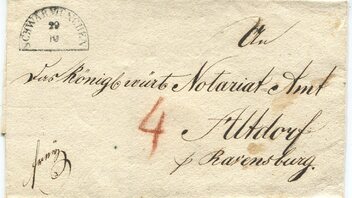 SCHWABMÜNCHEN
29
10
An
Das Königl würt Notariat Amt
4
Altdorf
p Ravensburg.